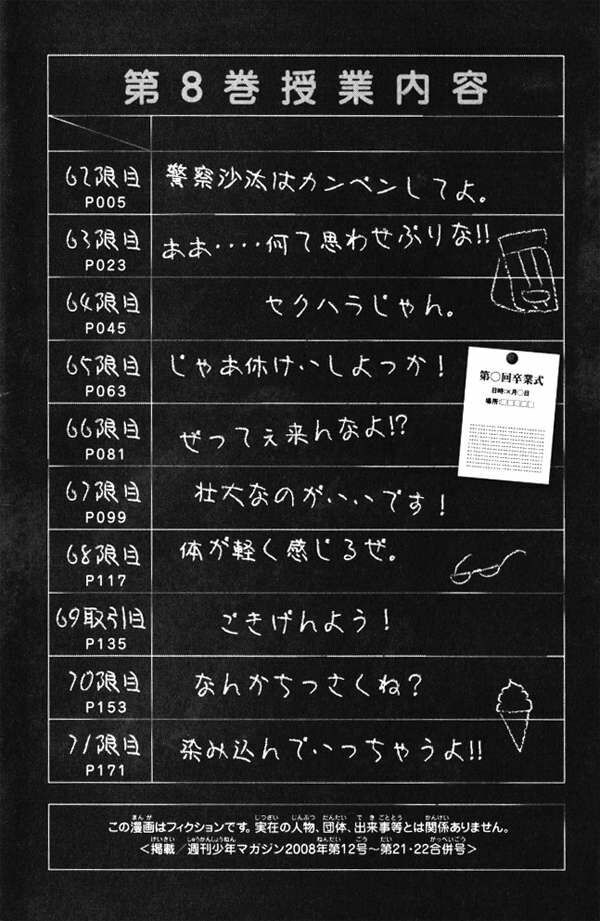 第8巻授業内容
62限目 警察沙汰はカンベンしてよ。
P005
63限目 ああ‥‥何て思わせぶりな!!
P023
64限目 セクハラじゃん。
P045
65限目 じゃあ休けいしよっか!
P063
第○回卒業式
日時:×月○日
場所:□□□□□
66限目 ぜってぇ来んなよ!?
P081
67限目 壮大なのがいいです!
P099
68限目 体が軽く感じるぜ。
P117
69取引目 ごきげんよう!
P135
70限目 なんかちっさくね?
P153
71限目 染み込んでいっちゃうよ!!
P171
この漫画はフィクションです。実在の人物、団体、出来事等とは関係ありません。
<掲載/週刊少年マガジン2008年第12号~第21・22合併号>